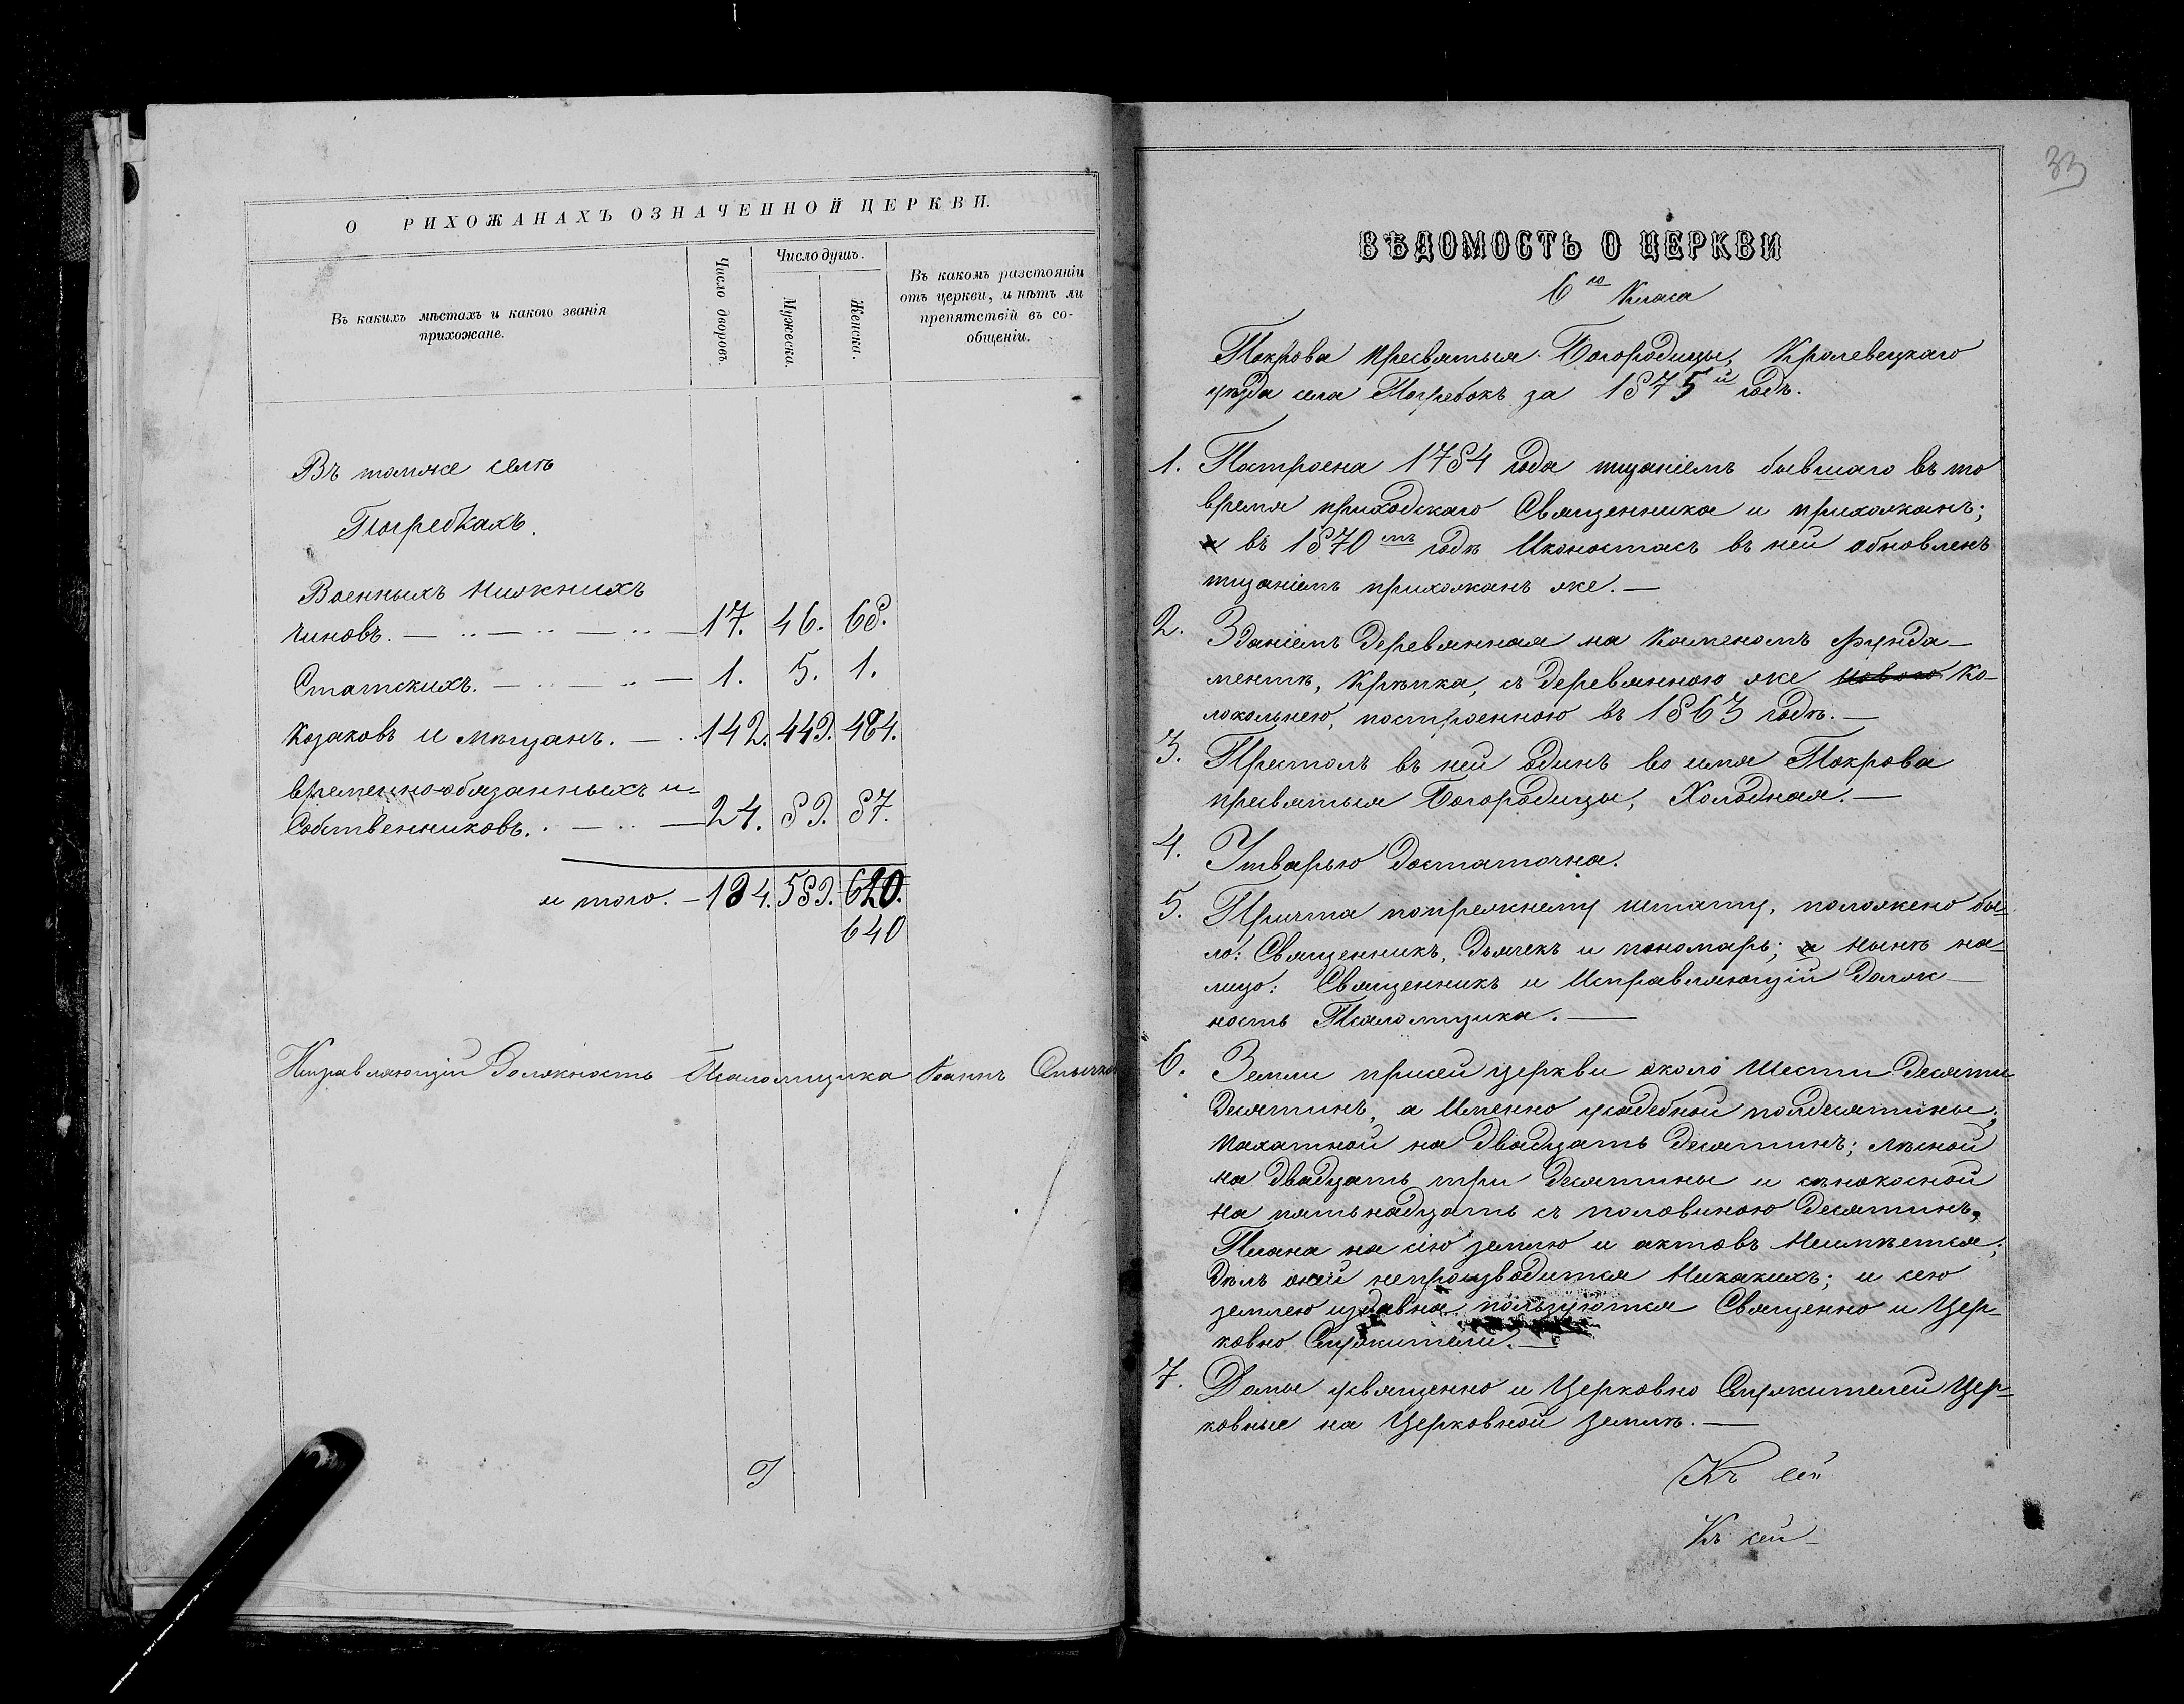 О РИХОЖАНАХЪ ОЗНАЧЕННОЙ ЦЕРКВИ.
Въ какихъ мѣстахъ и какого званія
прихожане.
Число дворовъ.
Число душъ.
Мужеска.
Женска.
Въ какомъ разстояніи
отъ церкви, и нѣтъ ли
препятствій въ со-
общеніи.
Въ томже селѣ
Погребкахъ.
Военныхъ нижнихъ
чиновъ. 17. 46. 68.
Статскихъ. 1. 5. 1.
Козаковъ и мѣщанъ. 142. 449. 484.
временно-обязанныхъ и
Собственниковъ. 24. 89. 87.
и того. 184. 589. 620.
640
Исправляющій Должность Псаломщика Іоаннъ
33
ВѢДОМОСТЬ О ЦЕРКВИ
6го Класа
Покрова пресвятыя Богородицы, Кролевецкаго
уѣзда села Погребокъ за 1875й годъ.
1. Построена 1784 года тщаніемъ бывшаго въ то
время приходскаго Священника и прихожанъ;
въ 1870мъ годѣ Иконостасъ въ ней обновленъ
тщаніемъ прихожанъ же.—
2. Зданіемъ деревянная на каменомъ фунда-
ментѣ, крѣпка, съ деревянною же новою ко-
локольнею, построенною въ 1863 годѣ.—
3. Престолъ въ ней одинъ во имя Покрова
пресвятыя Богородицы, Холодная.—
4. Утварью достаточна.
5. Причта попрежнему штату, положено бы-
ло: Священникъ, дьячекъ и пономарь; нынѣ на-
лицо: Священникъ и Исправляющій долж-
ность Псаломщика.—
6. Земли присей церкви около Шести десяти
десятинъ, а Именно усадебной полдесятины;
пахатной на двадцать десятинъ; лѣсной
на двадцать три десятины и сѣнокосной
на пятьнадцать съ половиною десятинъ,
Плана на сію землю и актовъ Неимѣется;
дѣлъ оней непроизводится Никакихъ; и сею
землею издавна пользуются Священно и Цер-
ковно Служители.—
7. Домы священно и Церковно Служителей Цер-
ковные на Церковной землѣ.—
Къ сей
Къ сей